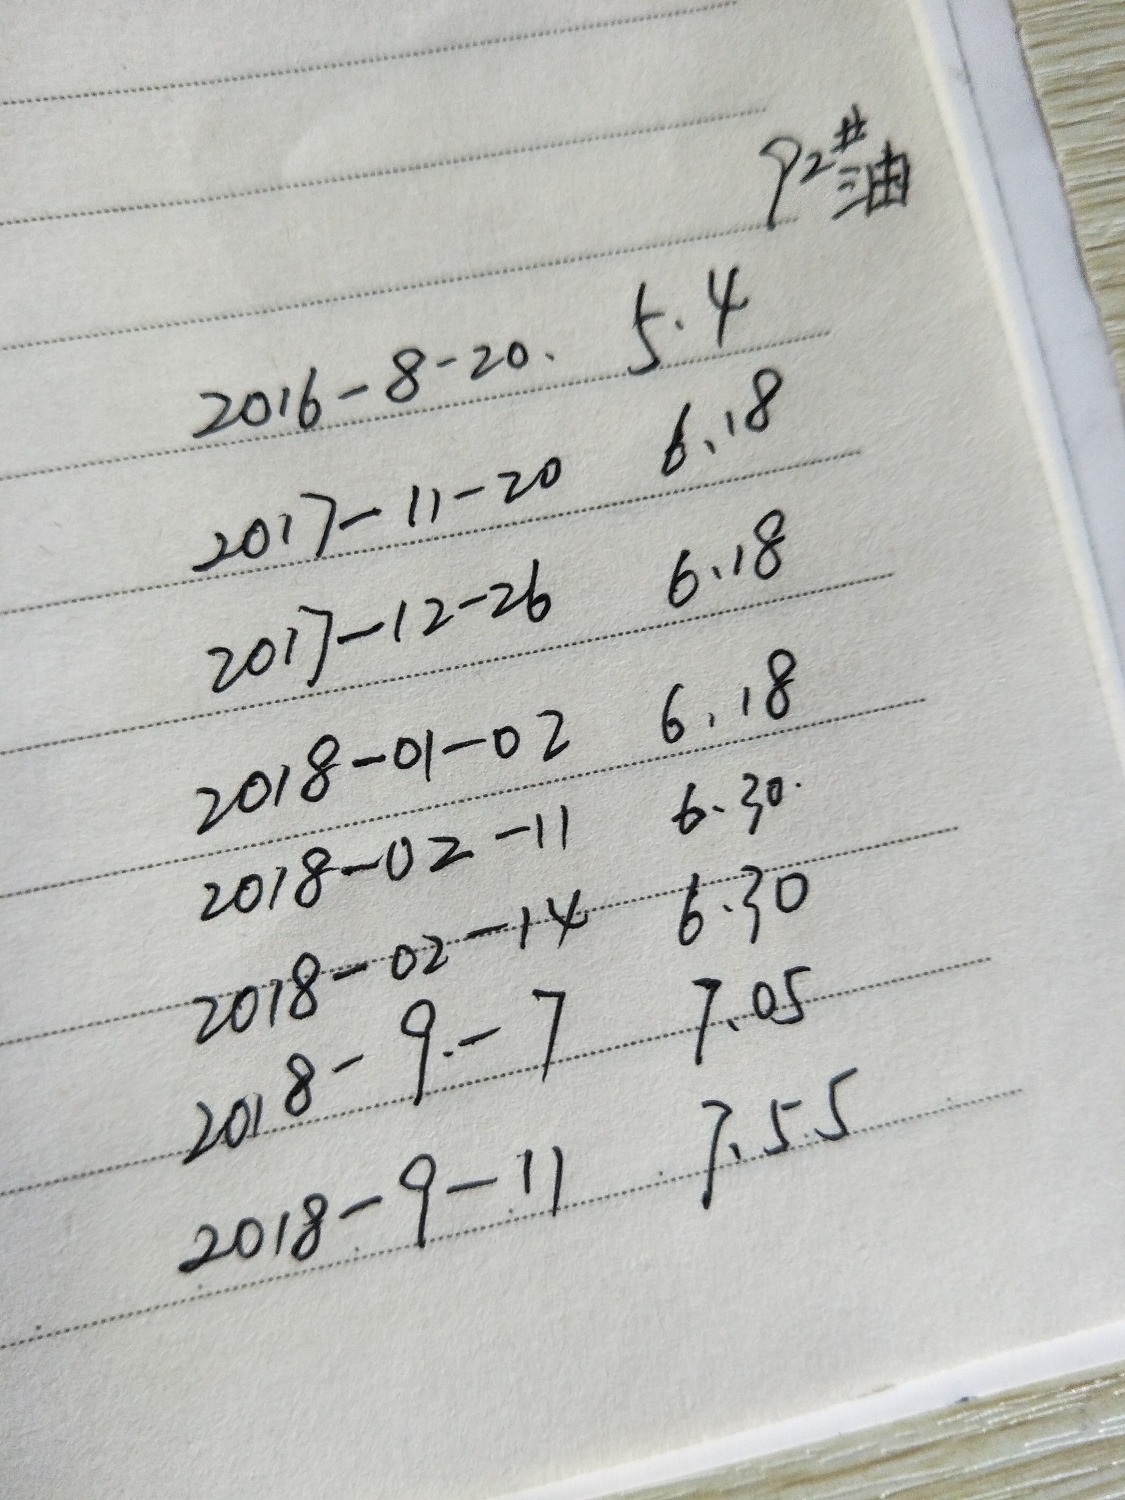 92#油
2016-8-20. 5.4
2017-11-20 6.18
2017-12-26 6.18
2018-01-02 6.18
2018-02-11 6.30.
2018-02-14 6.30
2018-9.-7 7.05
2018-9-11 7.55